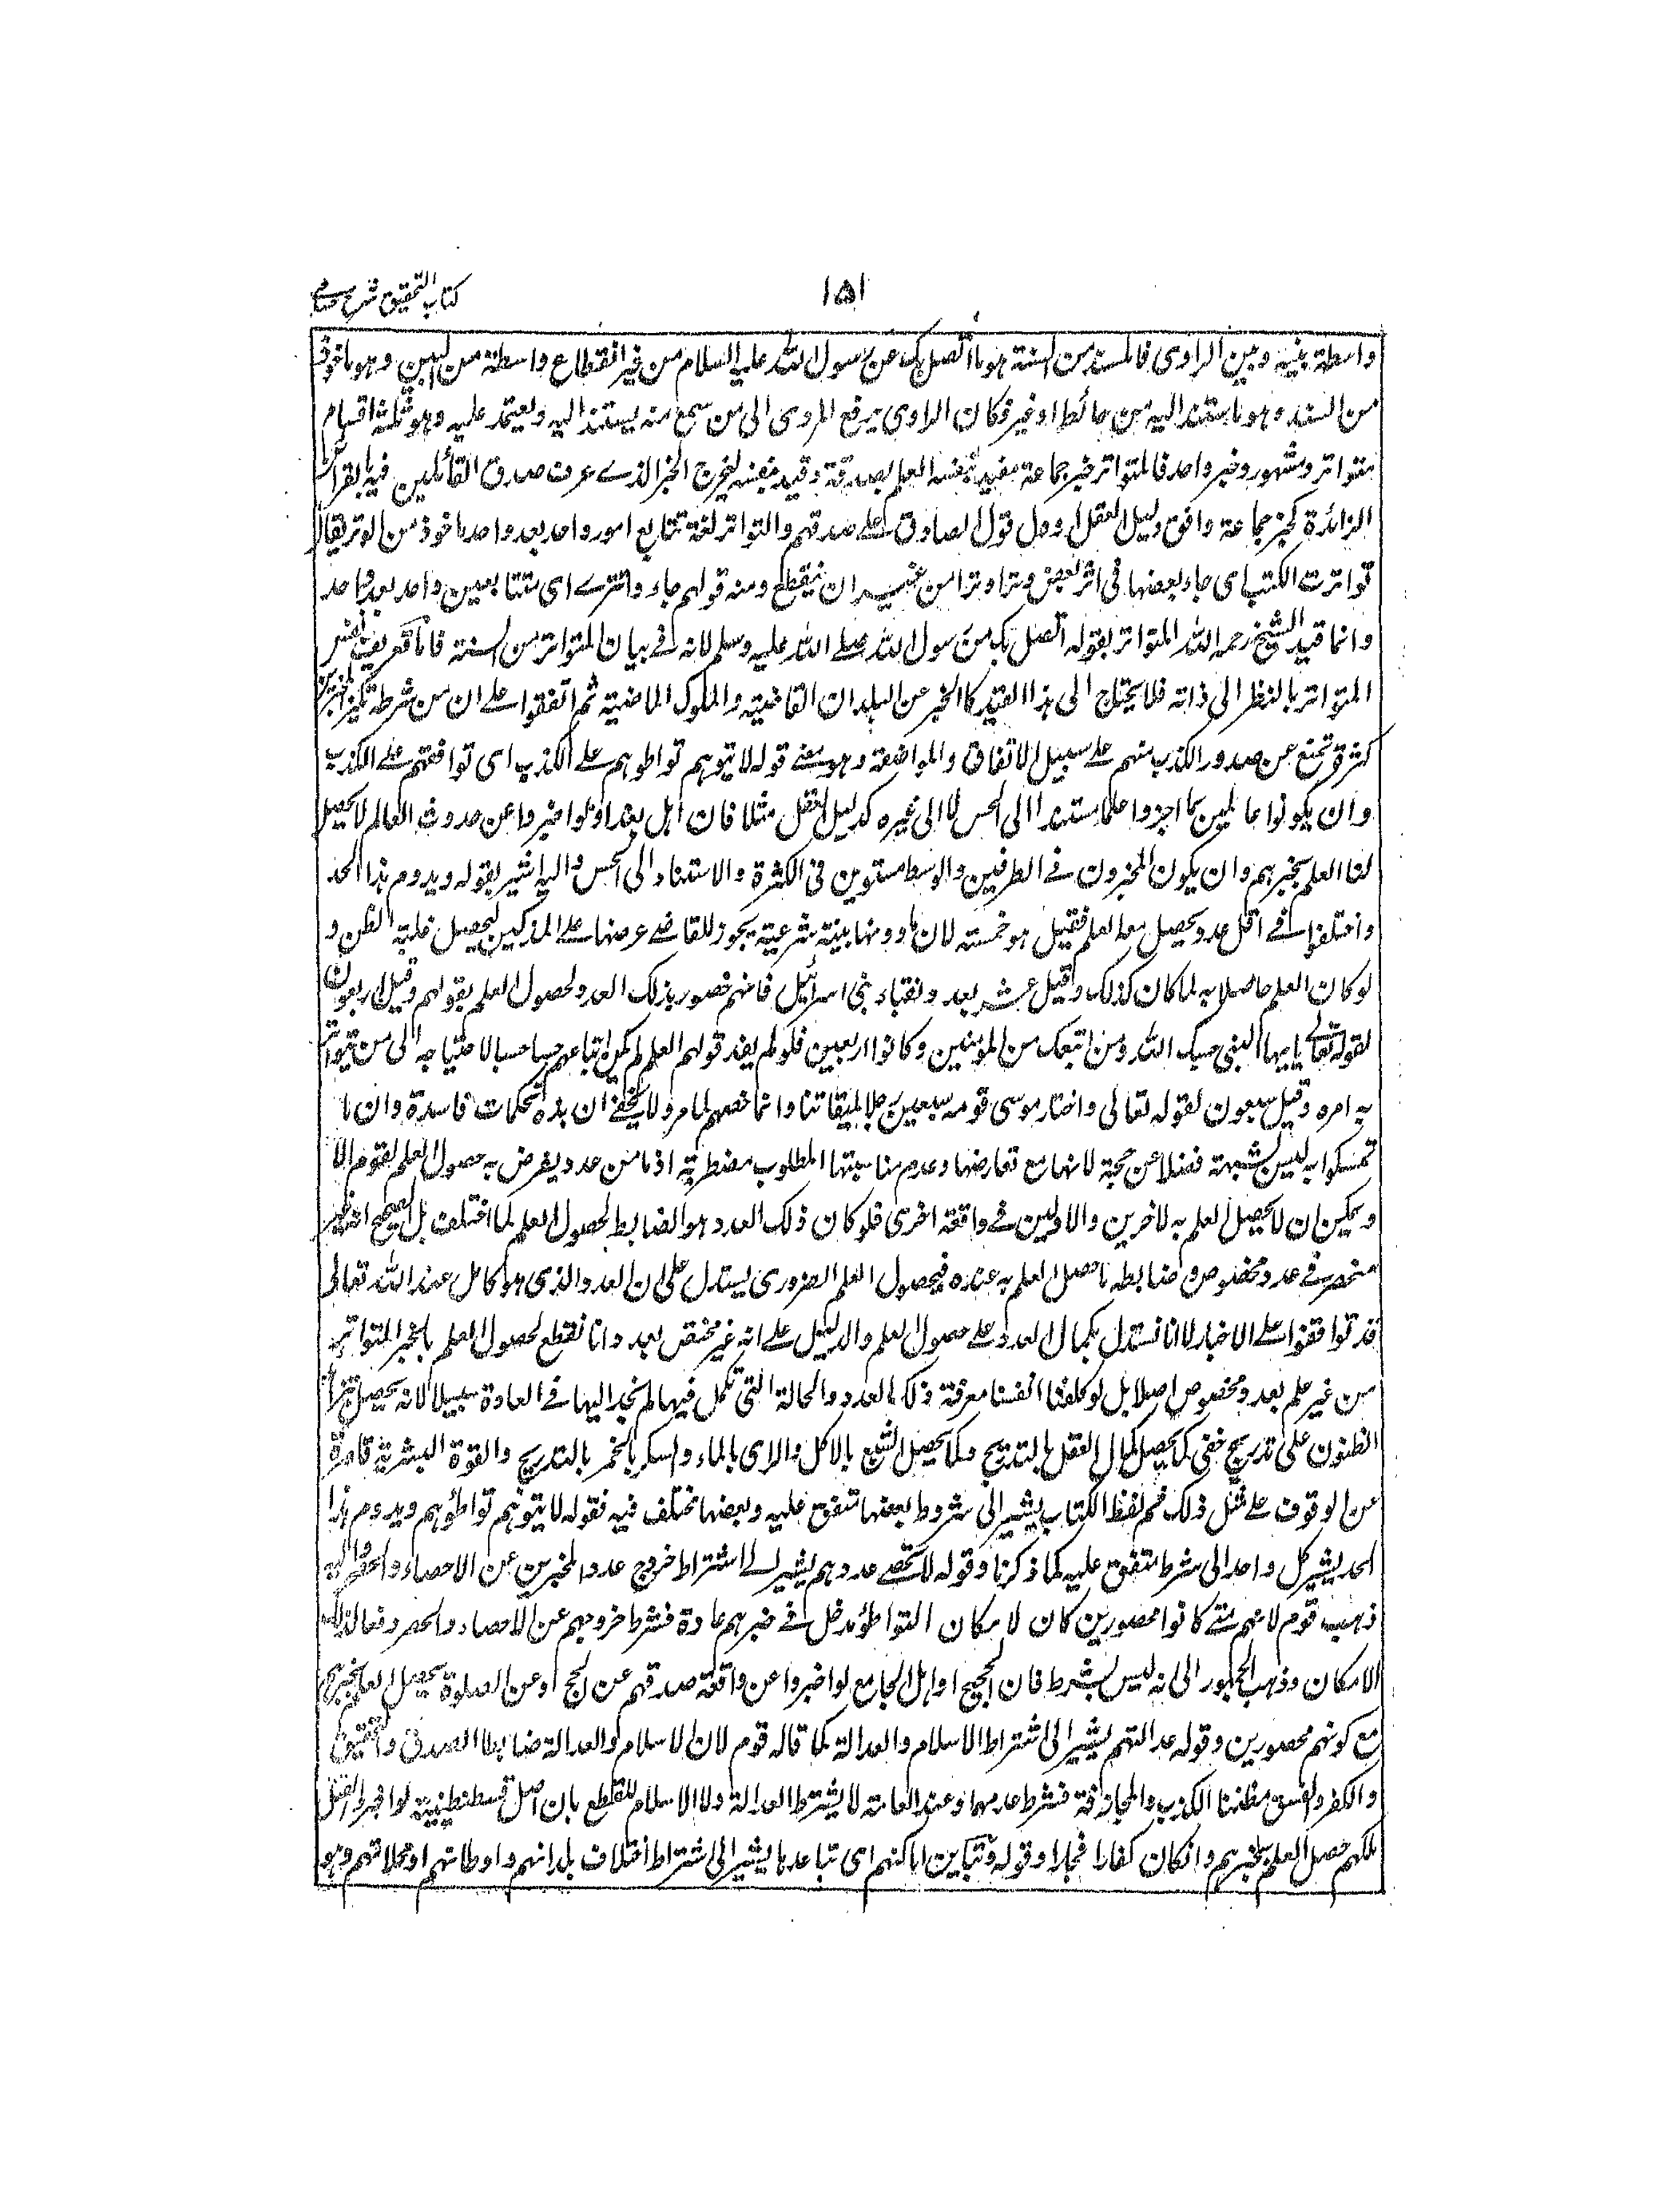 كتاب التحقيق شرح حسامى
١٥١
واسطة بينه وبين الراوى فالمسند من السنة هو ما اتصل بك عن رسول الله عليه السلام من غير انقطاع واسطة من البين وهو ماخوذ
من السند وهو ما يستند اليه من حائط او غيره فكان الراوى يرفع المروى الى من سمع منه يستند اليه ويعتمد عليه وهو ثلثة اقسام
متواتر ومشهور وخبر واحد فالمتواتر خبر جماعة مفيد بنفسه العلم بصدقه وقيد بنفسه ليخرج الخبر الذے عرف صدق القائلين فيه بالقرائن
الزائدة كخبز جماعة وافق دليل العقل او دل قول الصادق علے صدقهم والتواتر لغة تتابع امور واحد بعد واحد ماخوذ من الوتر يقال
تواترت الكتب اى جاء بعضها فى اثر بعض وترا وترا من غير ان ينقطع ومنه قولهم جاءوا تترے اى متتابعين واحد بعد واحد
وانما قيد الشيخ رحمه الله المتواتر بقوله اتصل بك من رسول الله صلے الله عليه وسلم لانه فے بيان المتواتر من السنة فاما تعريف الخبر
المتواتر بالنظر الى ذاته فلا يحتاج الى هذا القيد كالخبر عن البلدان القاضية والملوك الماضية ثم اتفقوا علے ان من شرطه تكثر المخبرين
كثرة تمنع عن صدور الكذب منهم علے سبيل الاتفاق والمواضعة وهو معنے قوله لا يتوهم تواطوهم علے الكذب اى توافقهم علے الكذب
وان يكونوا عالمين بما اخبروا علما مستندا الى الحس لا الى غيره كدليل العقل مثلا فان اهل بغداد لو اخبروا عن حدوث العالم لا يحصل
لنا العلم بخبرهم وان يكون المخبرون فے الطرفين والوسط مستوين فى الكثرة والاستناد الى الحس واليه اشير بقوله ويدوم هذا الحد
واختلفوا فے اقل عدد يحصل معه العلم فقيل هو خمسة لان ما دونها بينة شرعية يجوز للقاضے عرضها علے المزكين ليحصل غلبة الظن و
لو كان العلم حاصلا به لما كان كذلك وقيل عشر بعدد نقباء بنى اسرائيل فانهم خصوا بذلك العدد لحصول العلم بقولهم وقيل اربعون
لقوله تعالے يا ايها النبى حسبك الله ومن اتبعك من المؤمنين وكانوا اربعين فلو لم يفد قولهم العلم لم يكن اتباعهم حسبا حسبا لاحتياجه الى من يتواتر
به امره وقيل سبعون لقوله تعالى واختار موسى قومه سبعين رجلا لميقاتنا وانما خصهم لما مر ولا يخفے ان هذه تحكمات فاسدة وان ما
تمسكوا به ليس بشبهة فضلا عن حجة لانها مع تعارضها وعدم مناسبتها المطلوب مضطربة اذ ما من عدد يفرض به حصول العلم لقوم الا
ويمكن ان لا يحصل العلم به لاخرين وللاولين فے واقعة اخرى فلو كان ذلك العدد هو الضابط لحصول العلم لما اختلف بل الصحيح انه غير
منحصر فے عدد مخصوص وضابطه ما حصل العلم به عنده فبحصول العلم الضرورى يستدل على ان العدد الذى هو كامل عند الله تعالى
قد توافقوا علے الاخبار لا انا نستدل بكمال العدد علے حصول العلم والدليل علے انه غير مختص بعدد انا نقطع لحصول العلم بالخبر المتواتر
من غير علم بعدد مخصوص اصلا بل لو كلفنا انفسنا معرفة ذلك العدد والحالة التى تكمل فيها لم نجد اليها فے العادة سبيلا لانه يحصل بتزايد
الظنون على تدريج خفى كما يحصل كمال العقل بالتدريج وكما يحصل الشبع بالاكل والارى بالماء والسكر بالخمر بالتدريج والقوة البشرية قاصرة
عن الوقوف علے مثل ذلك ثم لفظ الكتاب يشير الى شروط بعضها متفق عليه وبعضها مختلف فيه فقوله لا يتوهم تواطؤهم ويدوم هذا
الحد يشير كل واحد الى شرط متفق عليه كما ذكرنا وقوله لا يحصے عددهم يشير الے اشتراط خروج عدد المخبرين عن الاحصاء والحصر واليه
ذهب قوم لانهم متے كانوا محصورين كان لامكان التواطؤ مدخل فے خبرهم عادة فشرط خروجهم عن الاحصاء والحصر دفعا لذلك
الامكان وذهب الجمهور الى انه ليس بشرط فان الحجيج او اهل الجامع لو اخبروا عن واقعة صدقهم عن الحج او عن الصلوة يحصل العلم بخبرهم
مع كونهم محصورين وقوله عدالتهم يشير الى اشتراط الاسلام والعدالة كما قاله قوم لان الاسلام والعدالة ضابطا الصدق والتحقيق
والكفر والفسق مظنتا الكذب والمجازفة فشرط عدمهما وعند العامة لا يشترط العدالة ولا الاسلام للقطع بان اهل قسطنطينية لو اخبروا بقتل
ملكهم حصل العلم بخبرهم وان كان كفارا فجارا وقوله وتباين اماكنهم اى تباعدها يشير الى اشتراط اختلاف بلدانهم واوطانهم او محلاتهم وهو